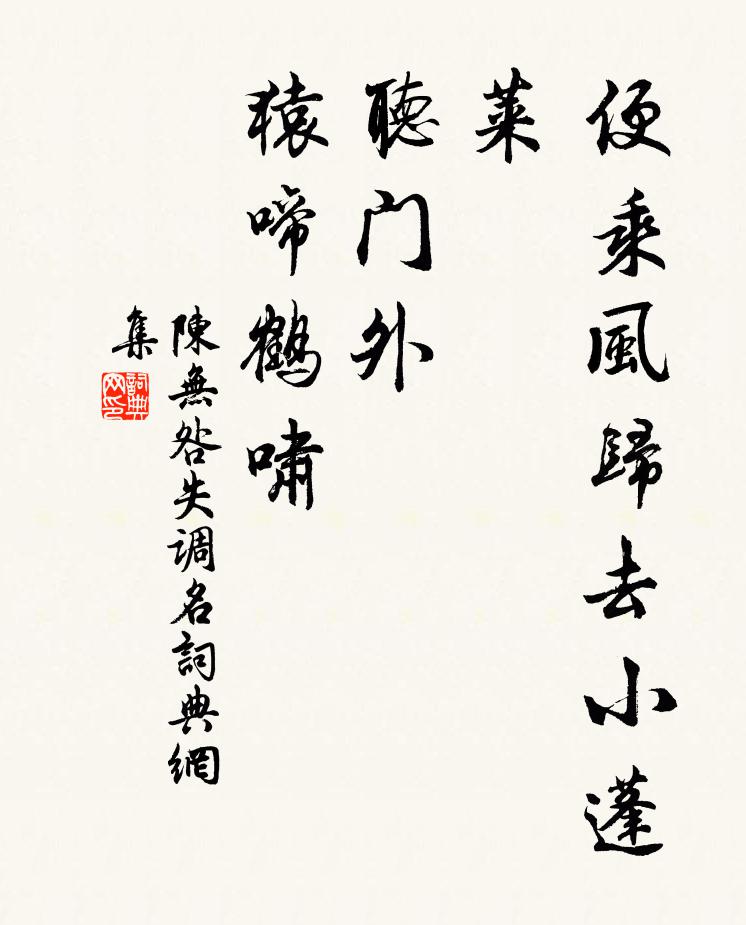 便乘風歸去小蓬
萊
聽门外
猿啼鶴嘯
陳無咎失调名詞典網
集
詞典网印